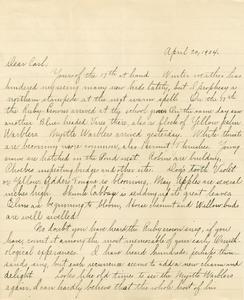 April 20, 1904.
Dear Carl,
Yours of the 17th at hand. Winter weather has
hindered my seeing many new birds lately, but I prophesy a
northern stampede at the next warm spell. On the
the Ruby Crowns arrived at the school grove. On the same day saw
another Blue headed Vireo there, also a flock of Yellow palm
Warblers. Myrtle Warblers arrived yesterday. White throats
are becoming more common, also Hermit Thrushes. Young
crows are hatched in the Pond nest. Robins are building,
Phoebes inspecting bridge and other sites. Dog's tooth Violet
or Yellow Adder Tongue is blooming, May Apples are several
inches tall. Skunk Cabbage sending up its great leaves.
Elms are beginning to bloom, Horse chestnut and Willow buds
are well swelled!
No doubt you have heard the Ruby crown sing, if you
have, count it among the most memorable of your early Ornith-
ological experiences. I have heard hundreds perhaps thou-
sands sing, but each recurrence seems to add a new charm and
delight. Looks like old times to see the Myrtle Warblers
again, I can hardly believe that the whole host of his